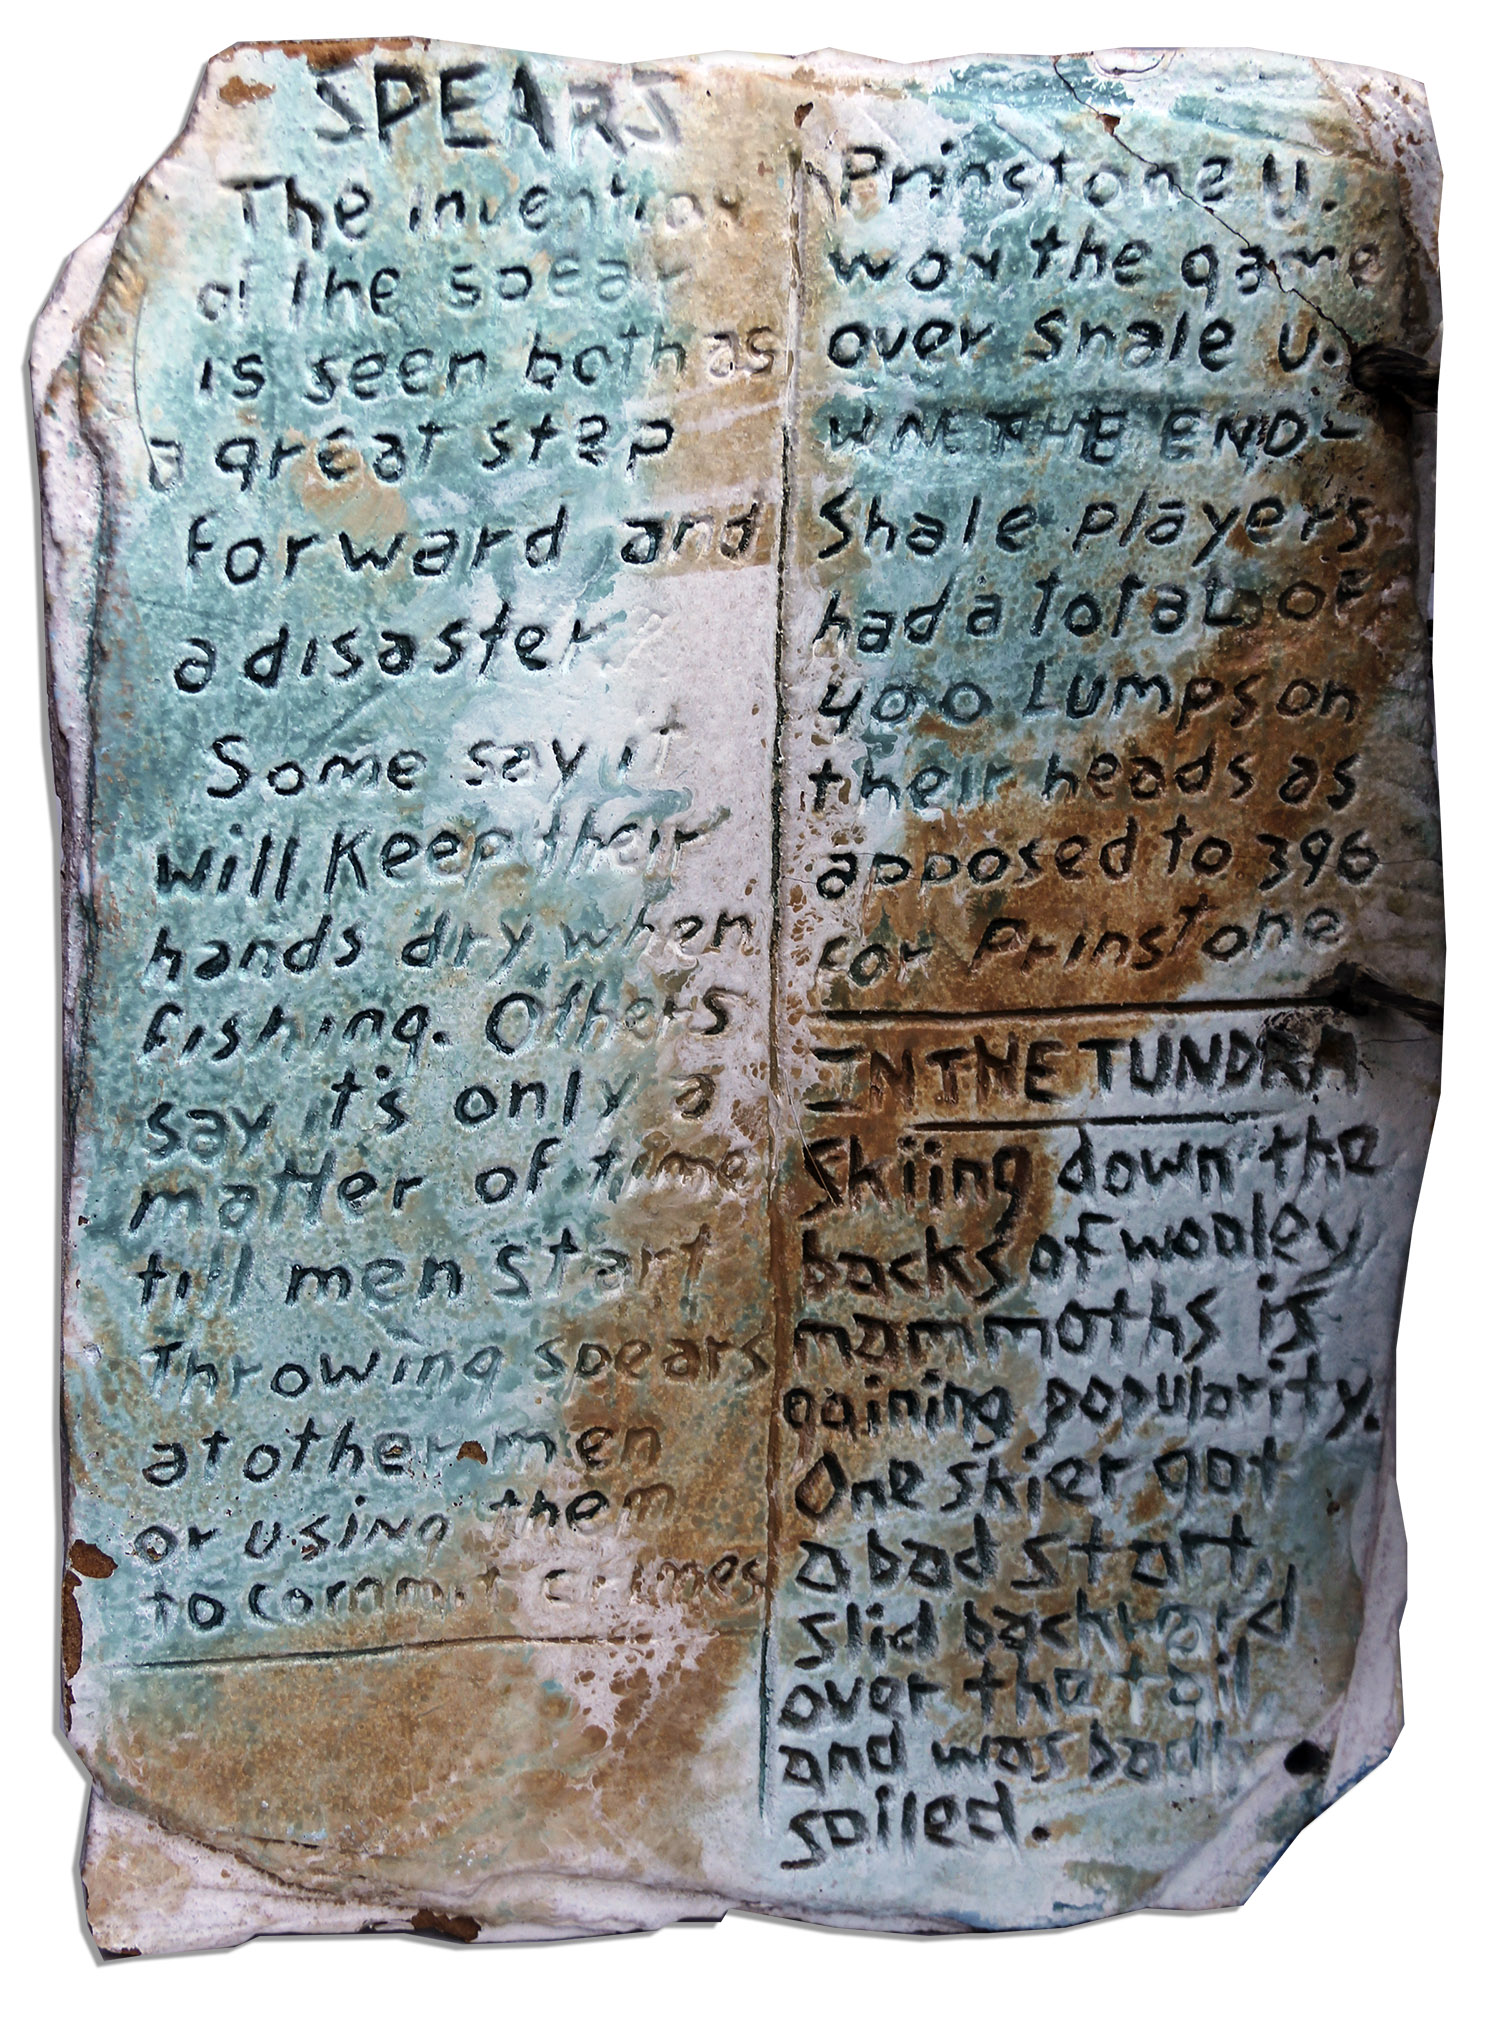 SPEARS
The invention
of the spear
is seen both as
a great step
forward and
a disaster
Some say it
will keep their
hands dry when
fishing. Others
say it's only a
matter of time
till men start
Throwing spears
at other men
or using them
to commit crimes
Prinstone U.
won the game
over Shale U.
THE END-
Shale players
had a total of
400 Lumps on
their heads as
apposed to 396
for Prinstone
IN THE TUNDRA
Skiing down the
backs of wooley
mammoths is
gaining popularity.
One skier got
a bad start,
slid backward
over the tail
and was badly
soiled.